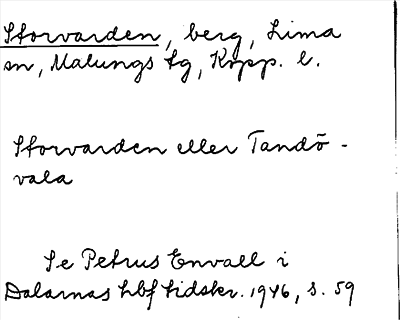 Storvarden, berg, Lima
sn, Malungs tg, Kopp. l.
Storvarden eller Tandö-
vala
Se Petrus Envall i
Dalarnas hbf tidskr. 1946, s. 59